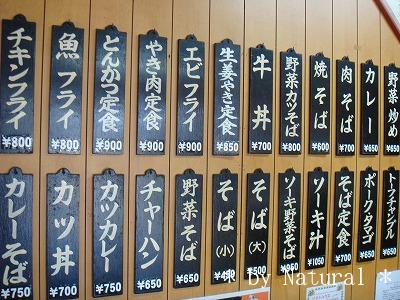 チキンフライ ¥800
魚フライ ¥800
とんかつ定食 ¥900
やき肉定食 ¥900
エビフライ ¥900
生姜やき定食 ¥850
牛丼 ¥700
野菜カツそば ¥800
焼そば ¥600
肉そば ¥700
カレー ¥650
野菜炒め ¥650
カレーそば ¥750
カツ丼 ¥700
カツカレー ¥750
チャーハン ¥650
野菜そば ¥650
そば(小)
そば(大) ¥500
ソーキ野菜そば
ソーキ汁 ¥1050
そば定食 ¥700
ポークタマゴ ¥650
トーフチャンプル ¥650
* by Natural *